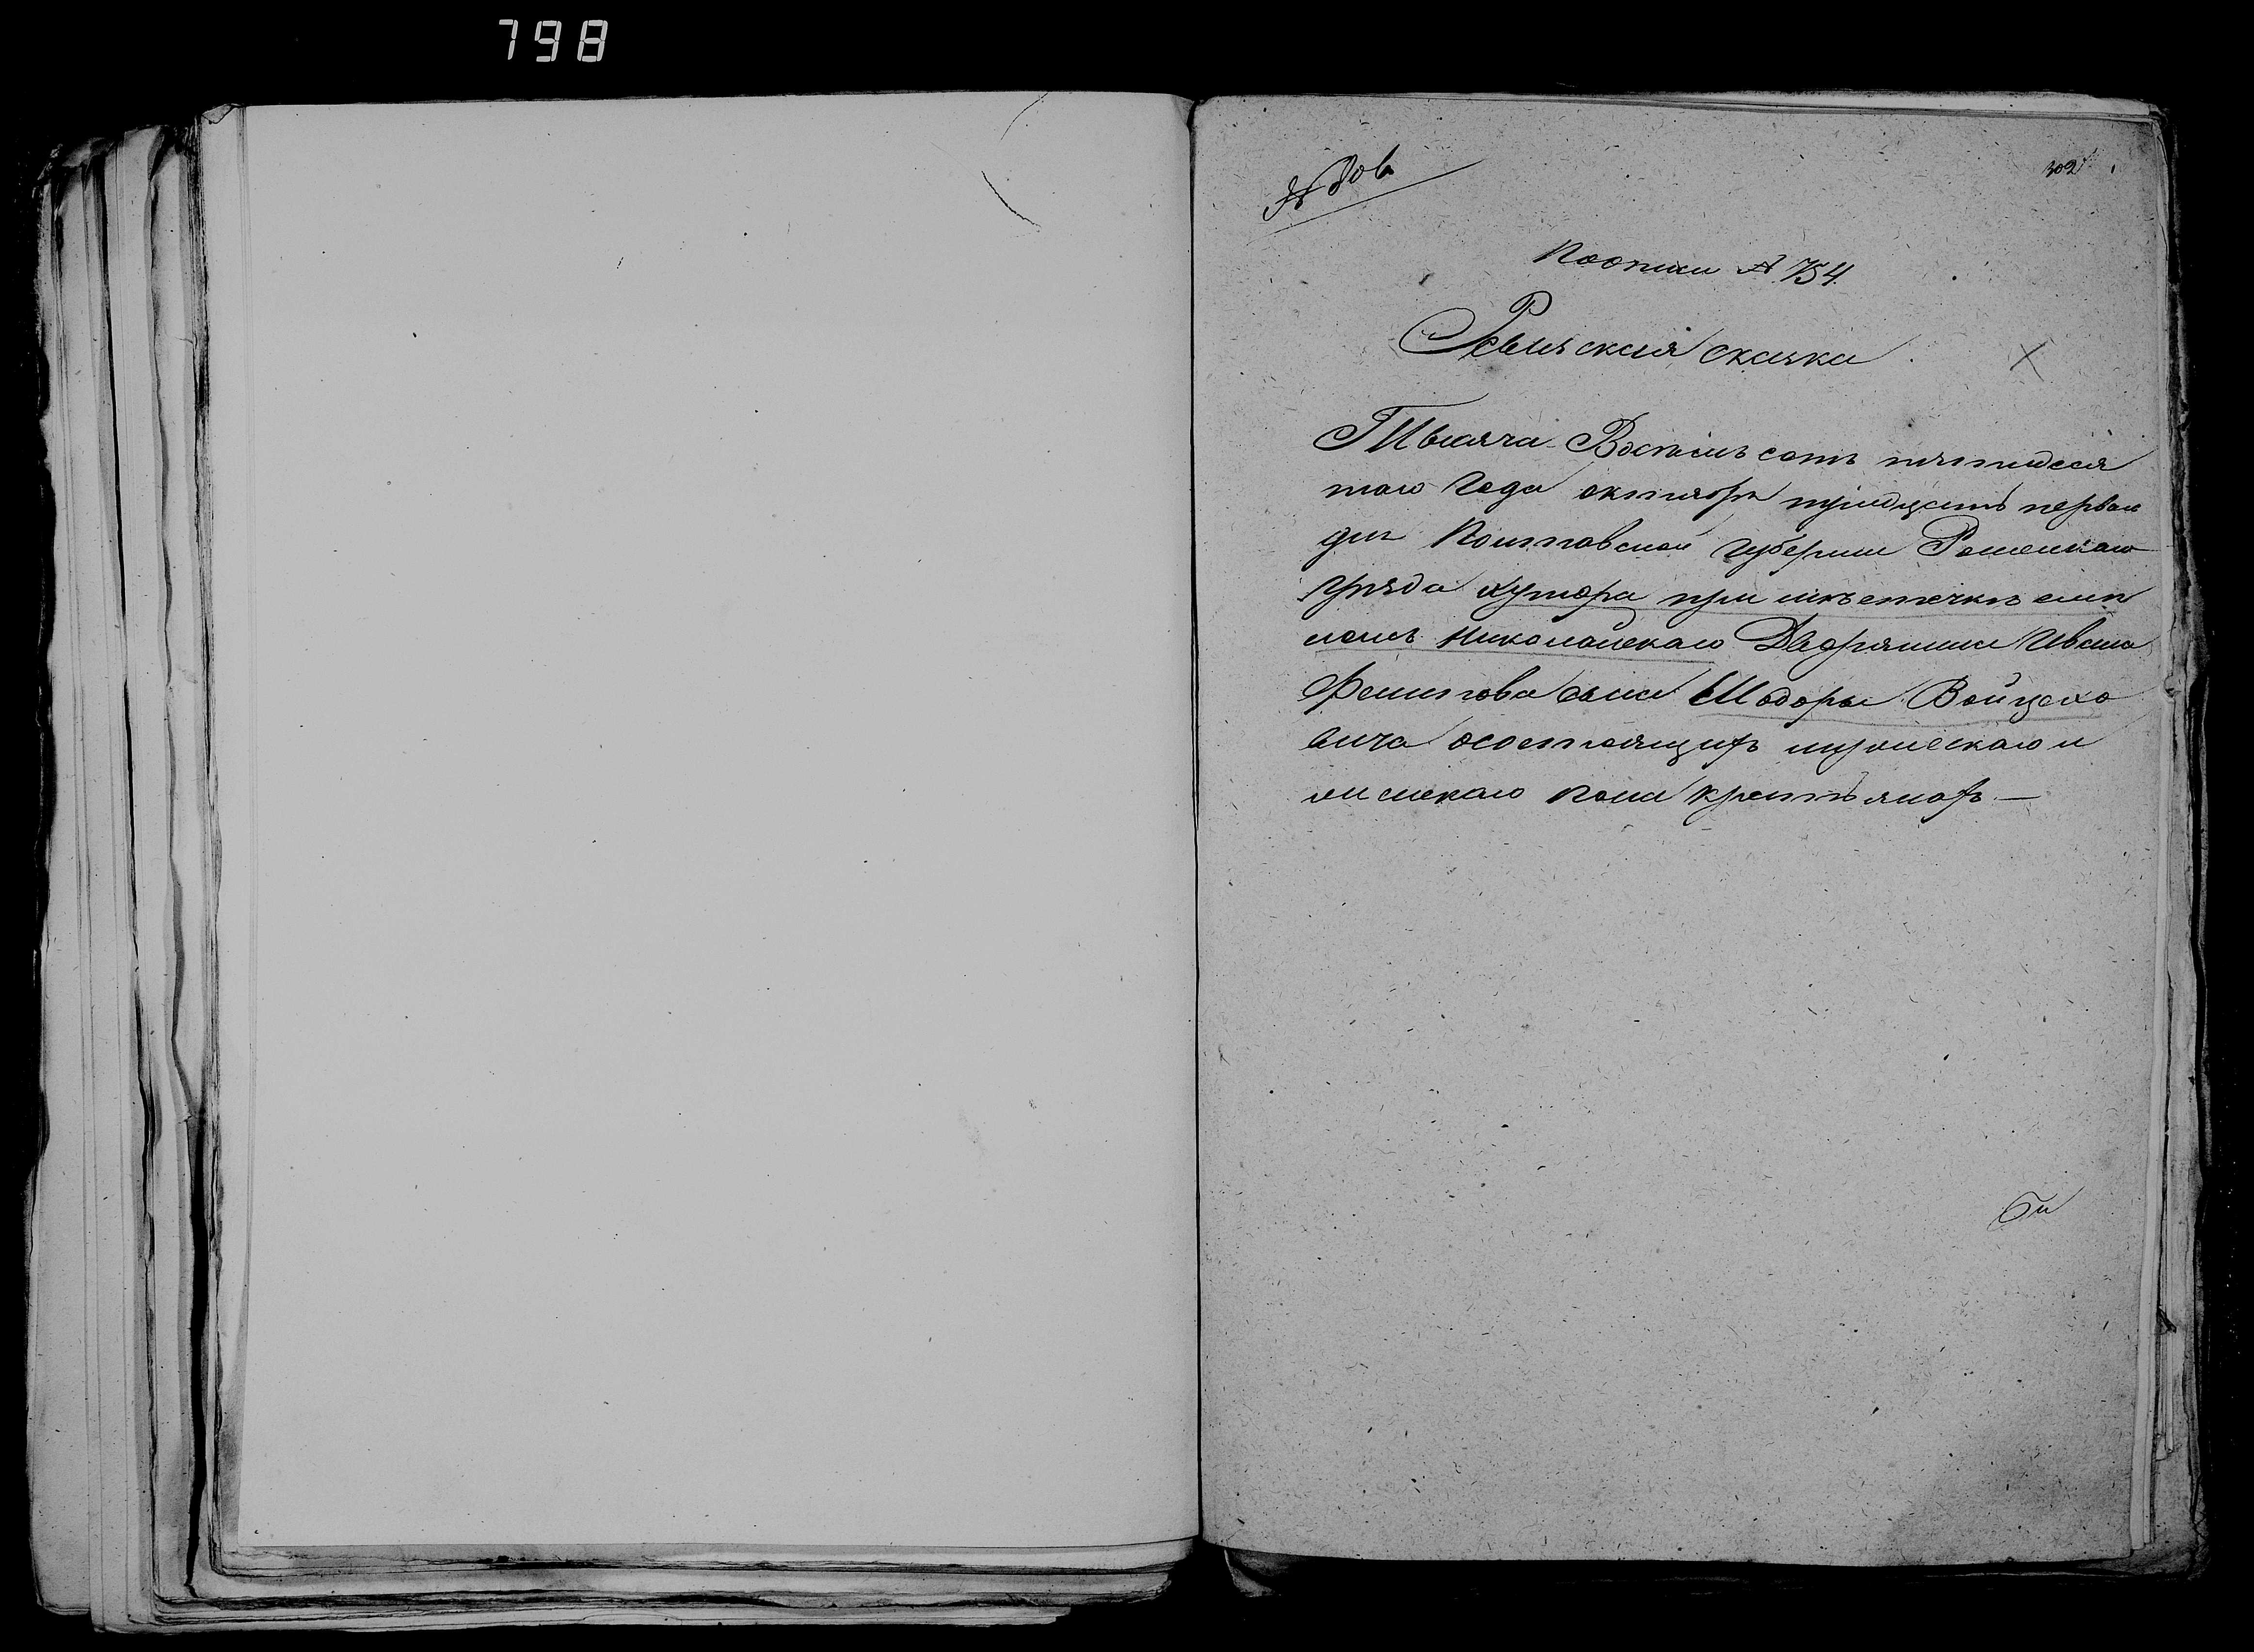 798
302
По описи № 754
Ревизская сказка
Тысяча Восемь сотъ пятидеся
таго года октября тридцать перваго
дня Полтавской губерніи Роменскаго
уѣзда хутора при мѣстечкѣ
Николаевскаго Дворянина Ивана
сына Войцехо
вича о состоящихъ мужескаго и
женскаго пола крестьянахъ —